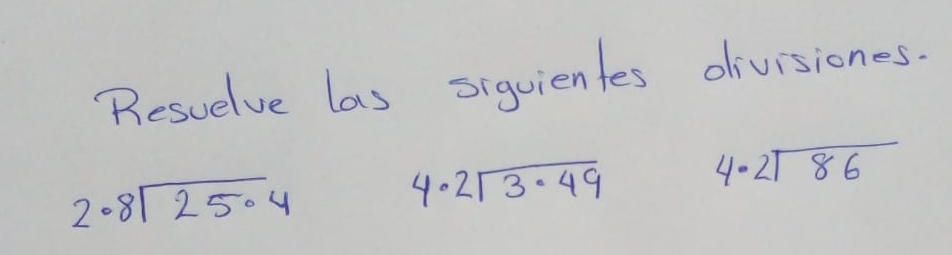 Resuelve las siguientes divisiones.
2.8⟌25.4 4.2⟌3.49 4.2⟌86